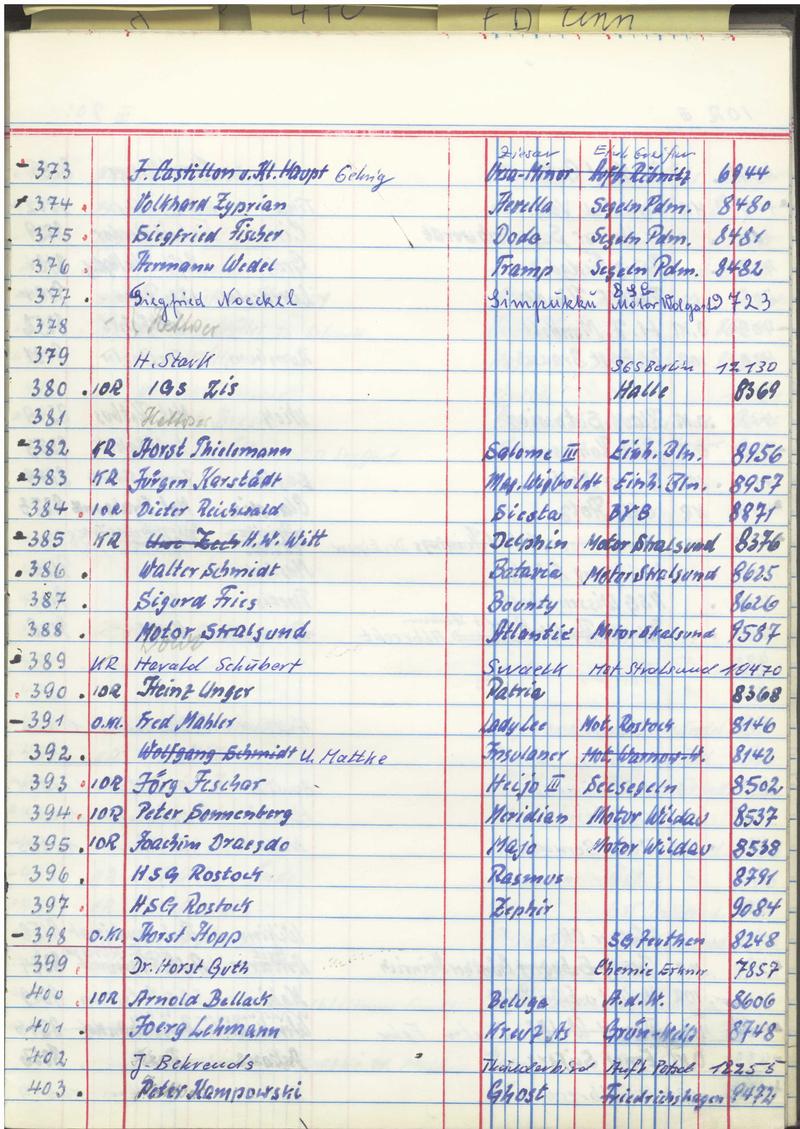 470 FD
Ziesar
- 373 F. Castillon v. Kl. Haupt Gehrig Ursa-Minor Aufb. Ribnitz 6944
374. Volkhard Zyprian Herella Segeln Pdm. 8480
375. Siegfried Fischer Dodo Segeln Pdm. 8481
376. Hermann Wedel Tramp Segeln Pdm. 8482
BSG
377. Siegfried Noeckel Simpukku Motor Wolgast 9723
378
379 H. Stark SGS Berlin 12130
380. IOR IGS Zis Halle 8369
381
- 382 KR Horst Thielemann Salome III Einh. Bln. 8956
- 383 KR Jürgen Karstädt May. Wigboldt Einh. Bln. 8957
384. IOR Dieter Reichwald Siesta BVB 8871
- 385 KR Uwe Zech H.W. Witt Delphin Motor Stralsund 8376
. 386. Walter Schmidt Batavia Motor Stralsund 8625
387. Sigurd Fries Bounty 8626
388. Motor Stralsund Atlantic Motor Stralsund 9587
389 KR Harald Schubert Swaelk Mot. Stralsund 10470
. 390. IOR Heinz Unger Patria 8368
- 391 O.M. Fred Mahler Lady Lee Mot. Rostock 8146
392. Wolfgang Schmidt U. Mattke Insulaner Mot. Warnow-W. 8142
393. IOR Jörg Fischer Heijo III Seesegeln 8502
394. IOR Peter Sonnenberg Meridian Motor Wildau 8537
395. IOR Joachim Draesdo Majo Motor Wildau 8538
396. HSG Rostock Rasmus 8791
397. HSG Rostock Zephir 9084
- 398 O.M. Horst Hopp SG Zeuthen 8248
399. Dr. Horst Guth Chemie Erkner 7857
400. IOR Arnold Bellack Beluga A.d.W. 8606
401. Joerg Lehmann Kreuz As Grün-Weiß 8748
402 J. Behrends Thunderbird Aufb Potsd 12255
403. Peter Kampowski Ghost Friedrichshagen 9472